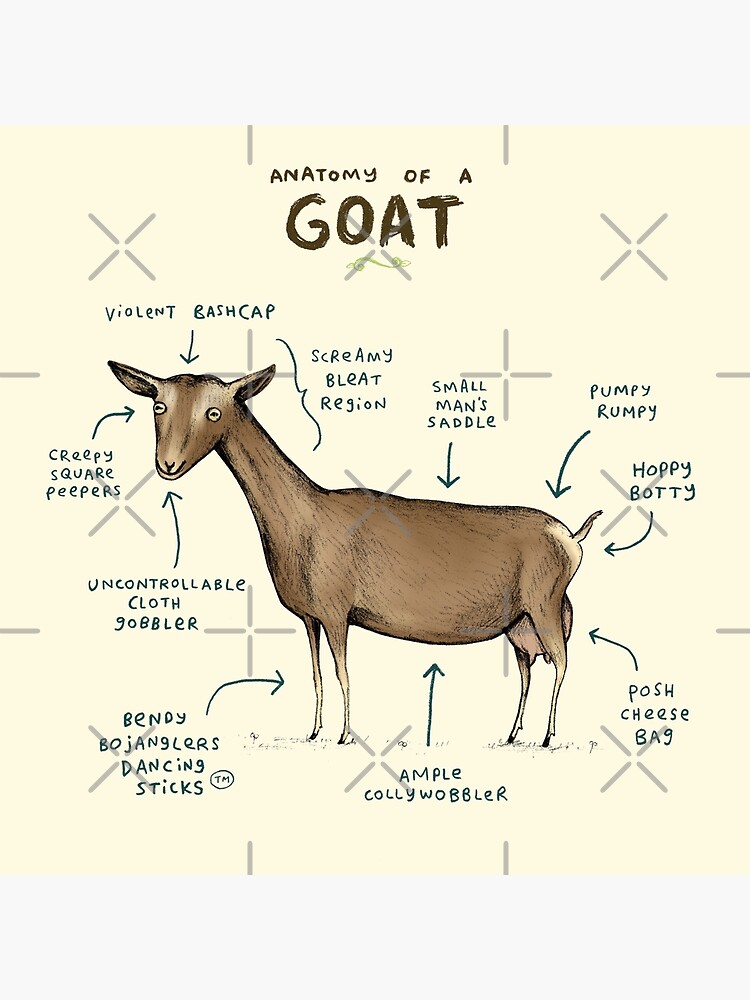 ANATOMY OF A
GOAT
VIOLENT BASHCAP
SCREAMY
BLEAT
REGION
SMALL
MAN'S
SADDLE
PUMPY
RUMPY
CREEPY
SQUARE
PEEPERS
HOPPY
BOTTY
UNCONTROLLABLE
CLOTH
GOBBLER
POSH
CHEESE
BAG
BENDY
BOJANGLERS
DANCING
STICKS TM
AMPLE
COLLYWOBBLER